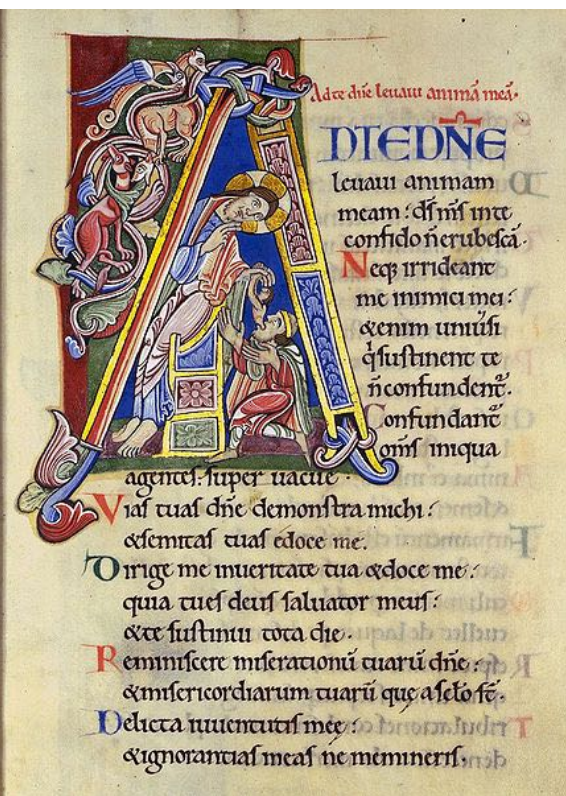 Ad te dn̄e leuaui animā meā.
AD TE DN̄E
leuaui animam
meam : dſ mſ in te
confido n̄ erubeſcā.
Neqꝫ irrideant
me inimici mei :
&enim uniūſi
q̇ ſuſtinent te
n̄ confundent̄.
Confundant̄
om̄ſ iniqua
agenteſ : ſuper uacue.
Viaſ tuaſ dn̄e demonſtra michi :
&ſemitaſ tuaſ edoce me.
Dirige me in ueritate tua &doce me :
quia tu eſ deuſ ſaluator meuſ :
&te ſuſtinui tota die.
Reminiſcere miſerationū tuarū dn̄e :
&miſericordiarum tuarū que a ſcl̄o ſt̄.
Delicta iuuentutiſ mee :
&ignorantiaſ meaſ ne memineriſ.